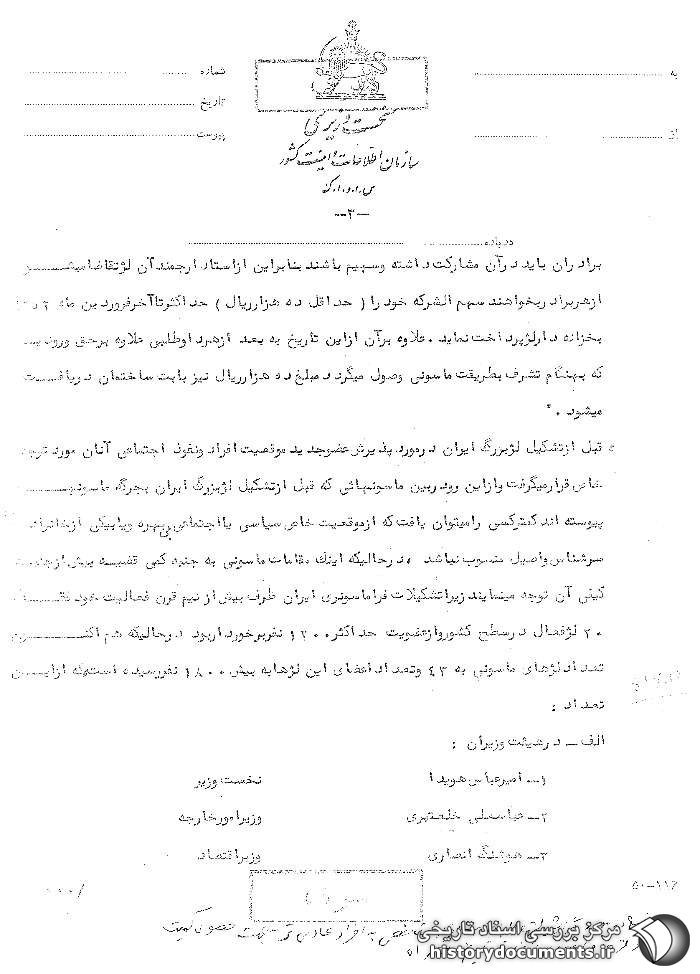 به
شماره
تاریخ
از
پیوست
نخست وزیری
سازمان اطلاعات و امنیت کشور
س.ا.و.ا.ک
-۳-
درباره
برادران باید درآن مشارکت داشته وسهیم باشند بنابراین ازاستاد ارجمند آن لژتقاضامیشود
ازهربرادربخواهند سهم الشرکه خود را ( حداقل ده هزارریال ) حداکثرتاآخرفروردین ماه
بخزانه دارلژپرداخت نماید . علاوه برآن ازاین تاریخ به بعد ازهرداوطلبی علاوه برحق ورودیه
که بهنگام تشرف بطریقت ماسونی وصول میگردد مبلغ ده هزارریال نیز بابت ساختمان دریافت
میشود . "
قبل ازتشکیل لژبزرگ ایران درمورد پذیرش عضوجدید موقعیت افراد ونفوذ اجتماعی آنان مورد توجه
خاص قرارمیگرفت وازاین رودربین ماسونهائی که قبل ازتشکیل لژبزرگ ایران بجرگه ماسونها
پیوسته اند کمترکسی رامیتوان یافت که ازموقعیت خاص سیاسی یااجتماعی بی بهره ویابیکی ازخانواده
سرشناس واصیل منسوب نباشد ، درحالیکه اینک مقامات ماسونی به جنبه کمی قضیه بیش ازجنبه
کیفی آن توجه مینمایند زیراتشکیلات فراماسونری ایران ظرف بیش از نیم قرن فعالیت خود
۲۰ لژفعال درسطح کشوروازعضویت حداکثر ۱۲۰۰ نفربرخورداربود درحالیکه هم اکنون
تعداد لژهای ماسونی به ۴۳ وتعداد اعضای این لژهابه بیش ۱۸۰۰ نفررسیده است که ازاین
تعداد :
الف - درهیئت وزیران :
۱- امیرعباس هویدا نخست وزیر
۲- عباسعلی خلعتبری وزیرامورخارجه
۳- هوشنگ انصاری وزیراقتصاد
۵۰-۱۱۶
سری
مرکز بررسی اسناد تاریخی
historydocuments.ir